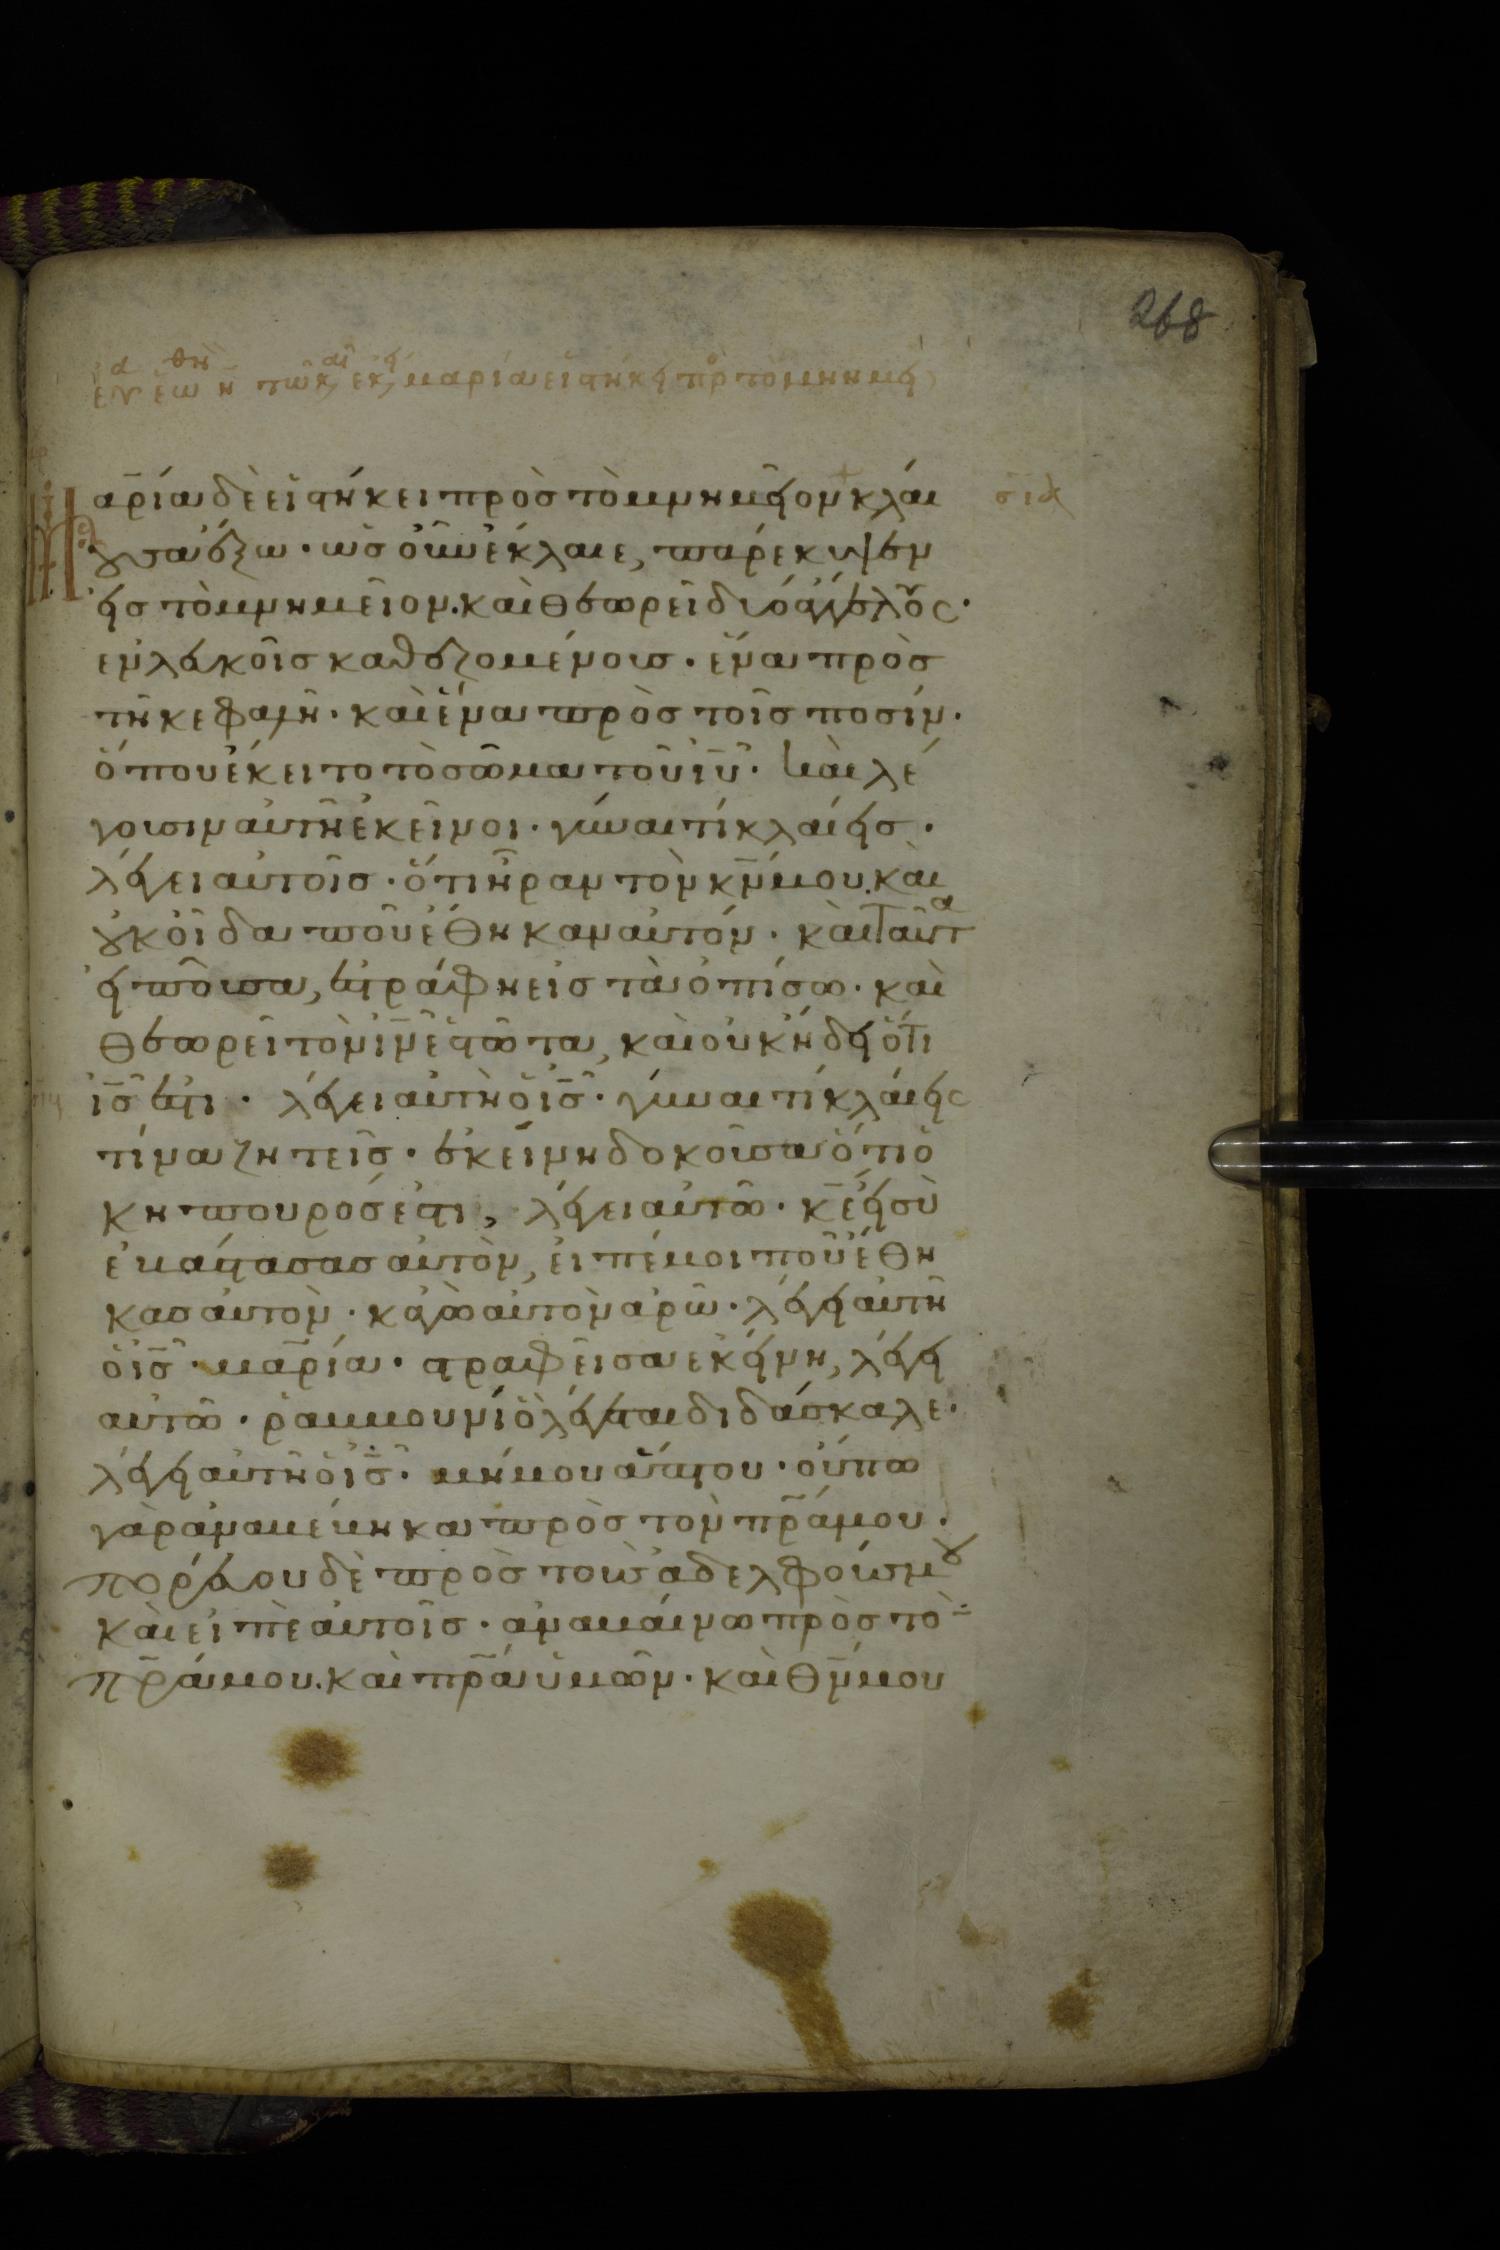 268
μαρία εἱστήκει πρὸς τὸ μνημεῖ
αρία δὲ εἱστήκει πρὸς τὸ μνημεῖον κλαί
ουσα ἔξω · ὡς οὖν ἔκλαιε, παρέκυψεν
εἰς τὸ μνημεῖον · καὶ θεωρεῖ δύο ἀγγέλους ·
ἐν λευκοῖς καθεζομένους · ἕνα πρὸς
τῆ κεφαλῆ · καὶ ἕνα πρὸς τοῖς ποσίν ·
ὅπου ἔκειτο τὸ σῶμα τοῦ ιυ · καὶ λέ
γουσιν αὐτῆ ἐκεῖνοι · γύναι τί κλαίεις ·
λέγει αὐτοῖς · ὅτι ἦραν τὸν κν μου · καὶ
οὐκ οἶδα ποῦ ἔθηκαν αὐτόν · καὶ ταῦτα
εἰποῦσα, ἐστράφη εἰς τὰ ὀπίσω · καὶ
θεωρεῖ τὸν ιν ἑστῶτα, καὶ οὐκ ἤδει ὅτι
ις ἐστι · λέγει αὐτῆ ὁ ις · γύναι τί κλαίεις
τίνα ζητεῖς · ἐκείνη δοκοῦσα ὅτι ὁ
κηπουρός ἐστι, λέγει αὐτῶ · κε εἰ σὺ
ἐβάστασας αὐτὸν, εἰπέ μοι ποῦ ἔθη
κας αὐτὸν · κἀγὼ αὐτὸν ἀρῶ · λέγει αὐτῆ
ὁ ις · μαρία · στραφεῖσα ἐκείνη, λέγει
αὐτῶ · ῥαββουνί ὃ λέγεται διδάσκαλε ·
λέγει αὐτῆ ὁ ις · μή μου ἅπτου · οὔπω
γὰρ ἀναβέβηκα πρὸς τὸν πρα μου ·
πορεύου δὲ πρὸς τοὺς ἀδελφούς μου
καὶ εἰπὲ αὐτοῖς · ἀναβαίνω πρὸς τὸ
πρα μου · καὶ πρα ὑμῶν · καὶ θν μου